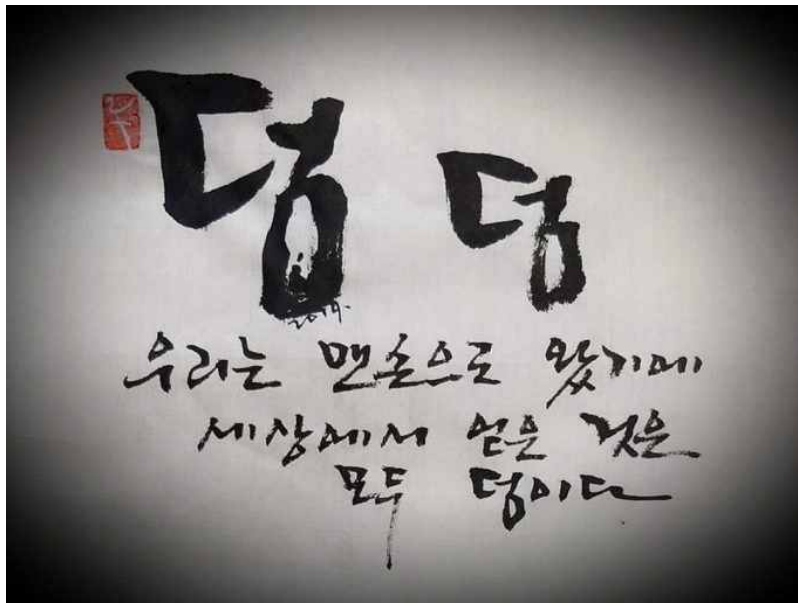 덤 덤
2019.
우리는 맨손으로 왔기에
세상에서 얻은 것은
모두 덤이다